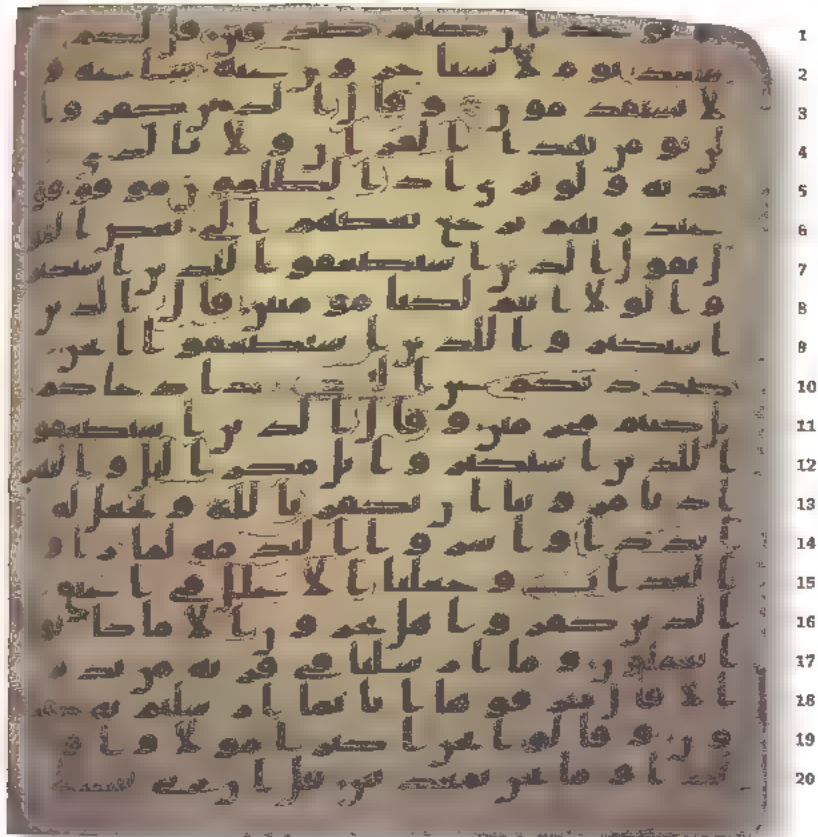 ا لوعد ان كنتم صدقين قل لكم
ميعد يوم لا تستاخرون عنه ساعة و
لا تستقدمون وقال الذين كفروا
لن نومن بهذا القران ولا بالذي بين
يديه ولو ترى اذ الظلمون موقوفون
عند ربهم يرجع بعضهم الى بعض القو
ل يقول الذين استضعفوا للذين استكبر
وا لولا انتم لكنا مومنين قال الذين
استكبروا للذين استضعفوا انحن
صددنكم عن الهدى بعد اذ جاكم
بل كنتم مجرمين وقال الذين استضعفو
ا للذين استكبروا بل مكر اليل والنهر
اذ تامروننا ان نكفر بالله ونجعل له
اندادا واسروا الندمة لما راوا
العذاب وجعلنا الاغلل في اعنق
الذين كفروا هل يجزون الا ما كانو
ا يعملون وما ارسلنا في قرية من نذير
الا قال مترفوها انا بما ارسلتم به كفر
ون وقالوا نحن اكثر امولا واو
لدا وما نحن بمعذبين قل ان ربي يبسط
1
2
3
4
5
6
7
8
9
10
11
12
13
14
15
16
17
18
19
20